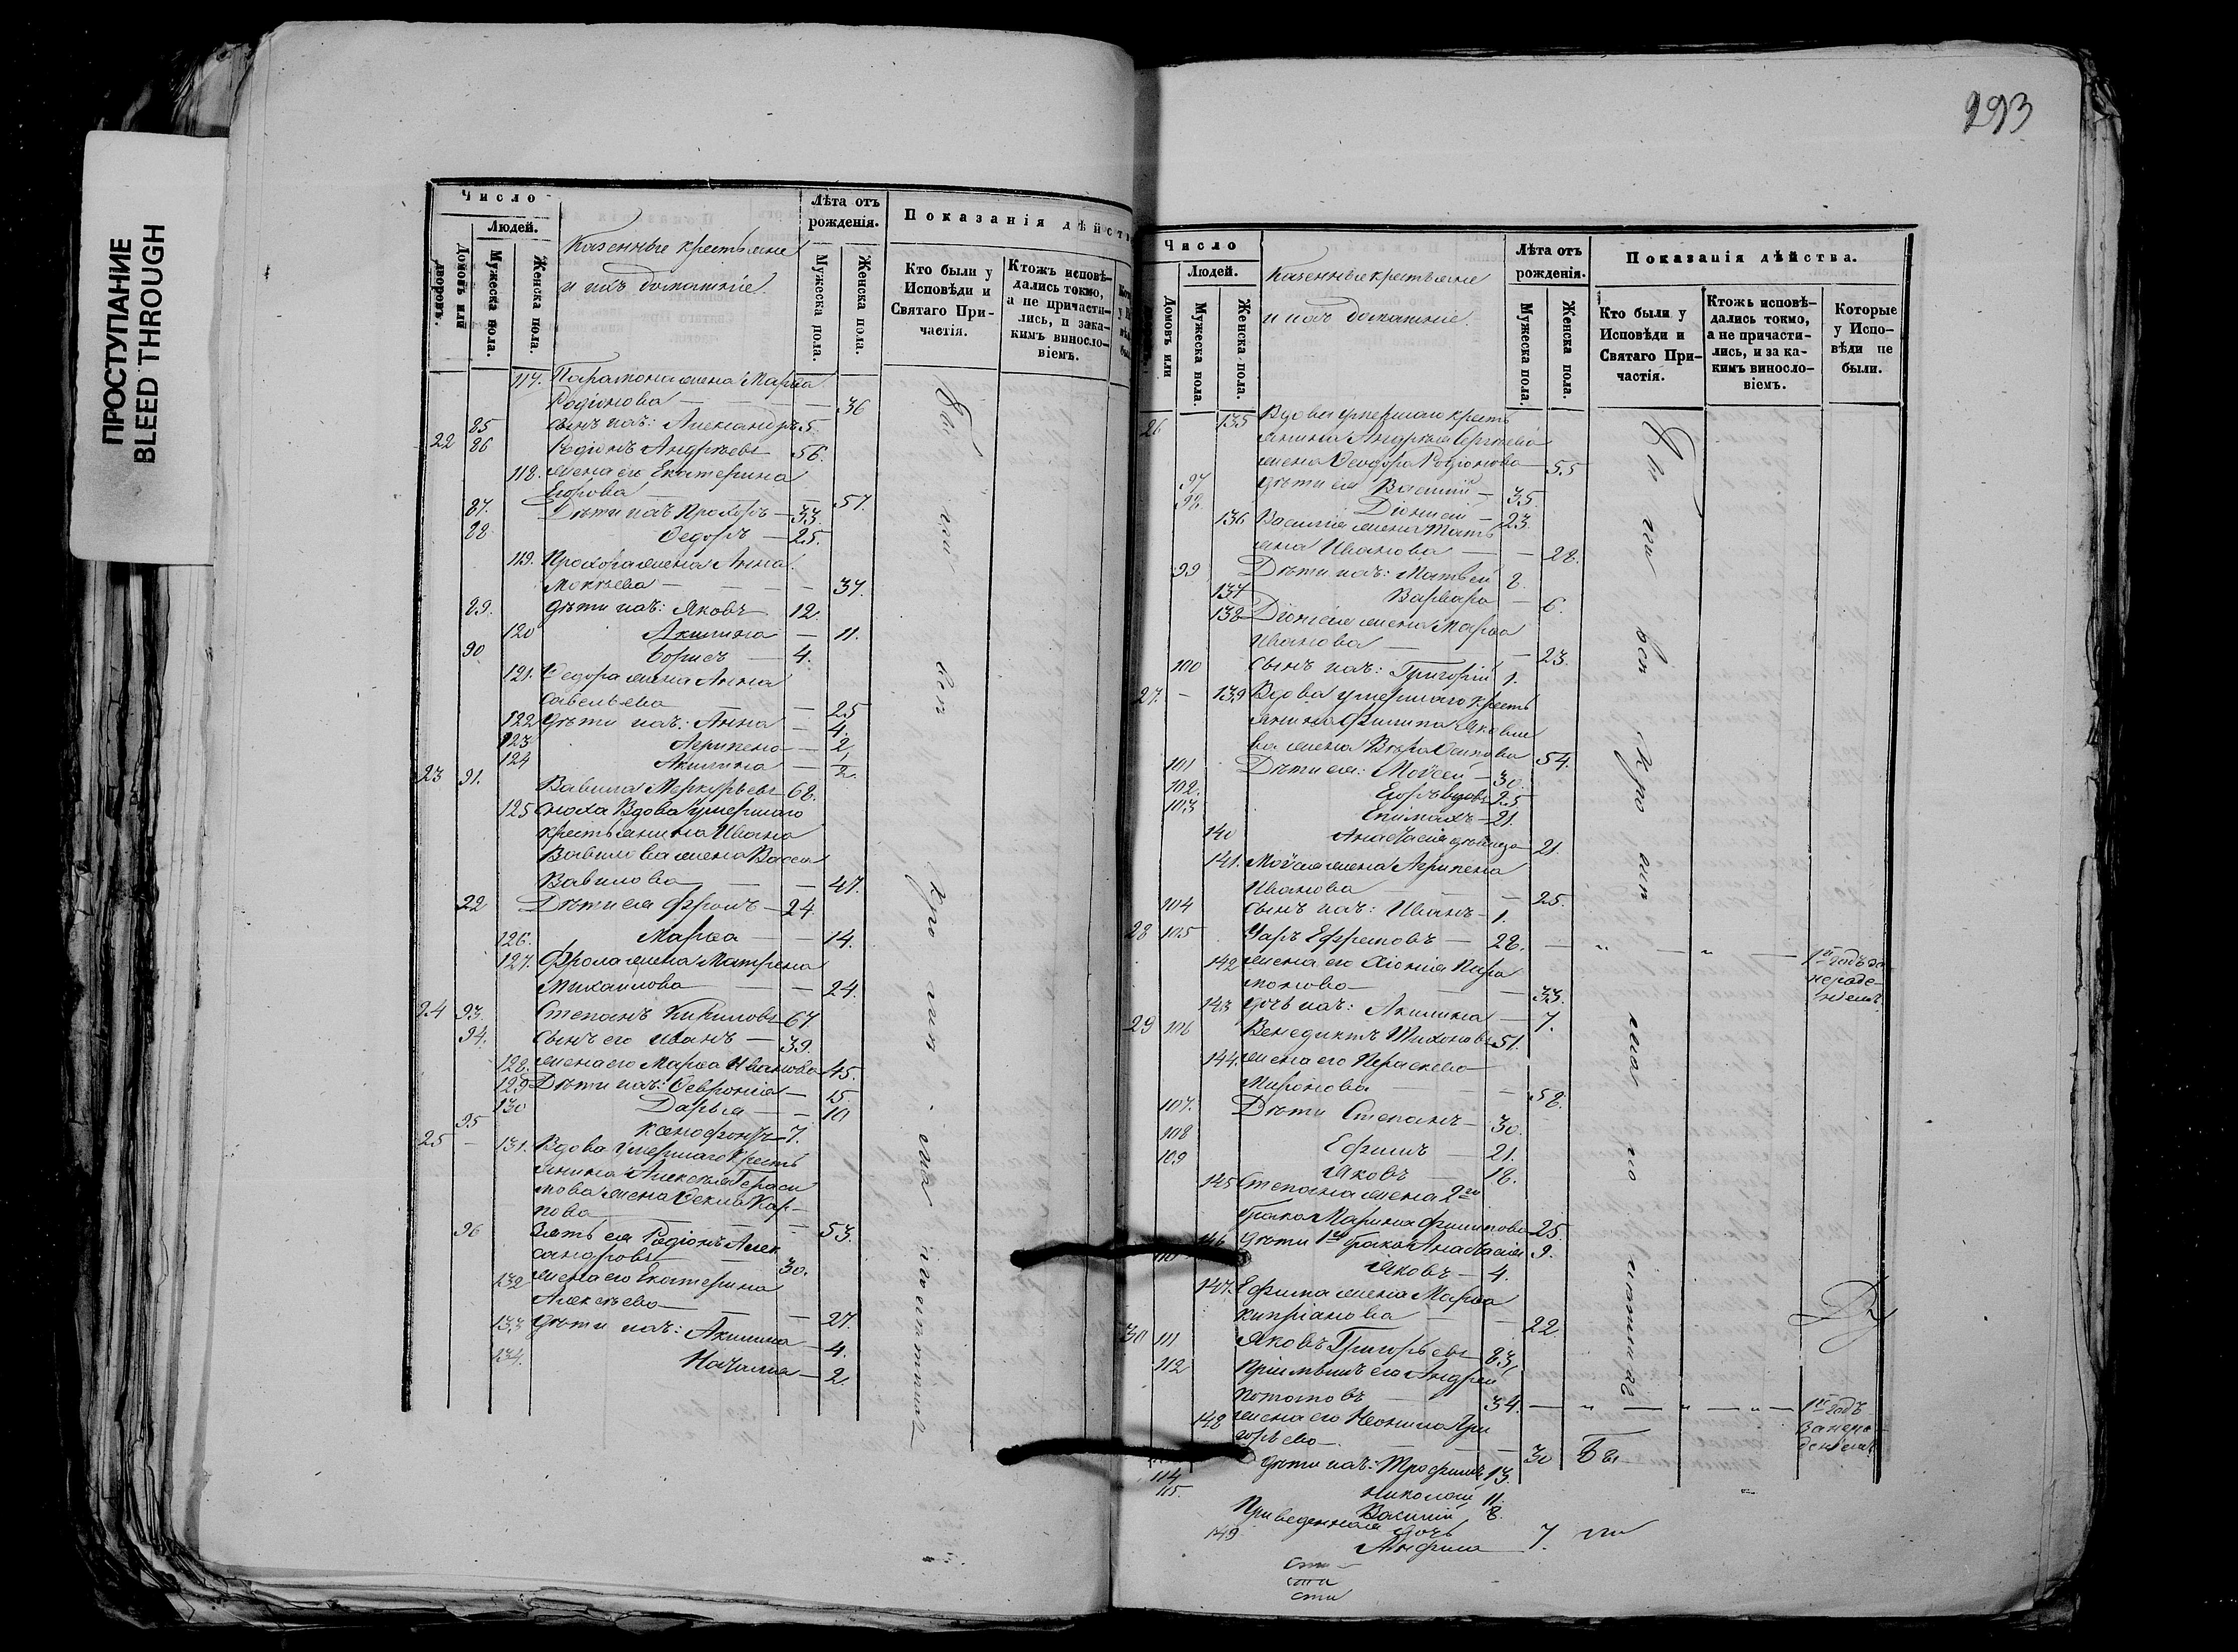 ПРОСТУПАНИЕ
BLEED THROUGH
293
Число
Людей.
Домовъ или дворовъ.
Мужеска пола.
Женска пола.
Казенные крестьяне
и ихъ домашніе.
Лѣта отъ рожденія.
Мужеска пола.
Женска пола.
Показанія дѣйств
Кто были у Исповѣди и Святаго Причастія.
Ктожъ исповѣдались токмо, а не причастились, и за какимъ винословіемъ.
117. Парамона жена Марѳа
Родіонова — — 36
85 сынъ ихъ: Александръ 5.
22 86 Родіонъ Андреевъ 56.
118. жена его Екатерина
Егорова — — 57.
87. Дѣти ихъ Прохоръ — 33.
88 Ѳедоръ — 25.
119. Прохора жена Анна
Мокѣева — — 37.
89. дѣти ихъ: Яковъ 12.
120 Акилина — 11.
90 Борисъ — 4.
121. Ѳедора жена Анна
Савельева — 25
122 дѣти ихъ: Анна — 4.
123 Агрипена — 2.
124 Акилина — 1/2.
23 91. Вавила Меркурьевъ 68.
125 сноха Вдова умершаго
крестьянина Ивана
Вавилова жена Васса
Вавилова — — 47.
92 Дѣти ея Фролъ — 24.
126. Марѳа — — 14.
127. Фрола жена Матрена
Михаилова — — 24.
24 93. Степанъ Кириловъ 67
94. сынъ его Иванъ — 39.
128. жена его Марѳа Иванова 45.
129 Дѣти ихъ: Ѳевронія — 15.
130 Дарья — — 10
95 Ксенофонтъ — 7.
25 — 131. Вдова умершаго крестьянина Алексея Гераси
мова жена Ѳекла Кар-
пова — — 53.
96 Зять ея Родіонъ Алек
сандровъ — 30.
132 жена его Екатерина
Алексѣева — — 27.
133 дѣти ихъ: Акилина — 4.
134. Наталія — 2.
Число
Людей.
Домовъ или
Мужеска пола.
Женска пола.
Казенные крестьяне
и ихъ домашніе.
Лѣта отъ рожденія.
Мужеска пола.
Женска пола.
Показанія дѣйства.
Кто были у Исповѣди и Святаго Причастія.
Ктожъ исповѣдались токмо, а не причастились, и за какимъ винословіемъ.
Которые у Исповѣди не были.
26 135 Вдова умершаго кресть
янина Андрея Сергѣева
жена Ѳеодора Родіонова 55
97 дѣти ея Василій — 35.
98. Діонисій — 23.
136 Василія жена Тать
яна Иванова — — 28.
99 Дѣти ихъ: Матвей 8.
137 Варвара — 6.
138 Діонисія жена Марѳа
Иванова — — 23.
100 сынъ ихъ: Григорій 1.
27. — 139 Вдова умершаго кресть
янина Филипа Яковле
ва жена Вѣра Осипова 54.
101 Дѣти ея: Моѵсей — 30.
102. Егоръ вдовъ 25.
103 Епимахъ — 21.
140 Анастасія дѣвица 21.
141. Моѵсея жена Агрипена
Иванова — 25.
104 сынъ ихъ: Иванъ — 1.
28 105 Уаръ Ефремовъ — 28.
1й годъ за
нераде-
ніемъ
142 жена его Хіонія Пара
монова — — 33.
143 дочь ихъ: Акилина — 7.
29 106 Венедиктъ Тихоновъ 51.
144. жена его Параскева
Миронова — 58.
107. Дѣти Степанъ — 30.
108 Ефимъ — 21.
109 Яковъ — 18.
145 Степана жена 2го
брака Марина Филипова 25
146 дѣти 1го брака Анастасія 9.
110 Яковъ — 4.
147. Ефима жена Марѳа
Кипріанова — — 22
30 111 Яковъ Григорьевъ 83.
112 Пріимышъ его Андрей
Потаповъ — 34.
1й годъ
за нера-
деніемъ
148 жена его Неонила Гри
горьева — — 30 Бы
дѣти ихъ: Трофимъ 13.
114 Николай 11.
115. Василій 8.
Приведенная дочь
149 Анфиса 7.